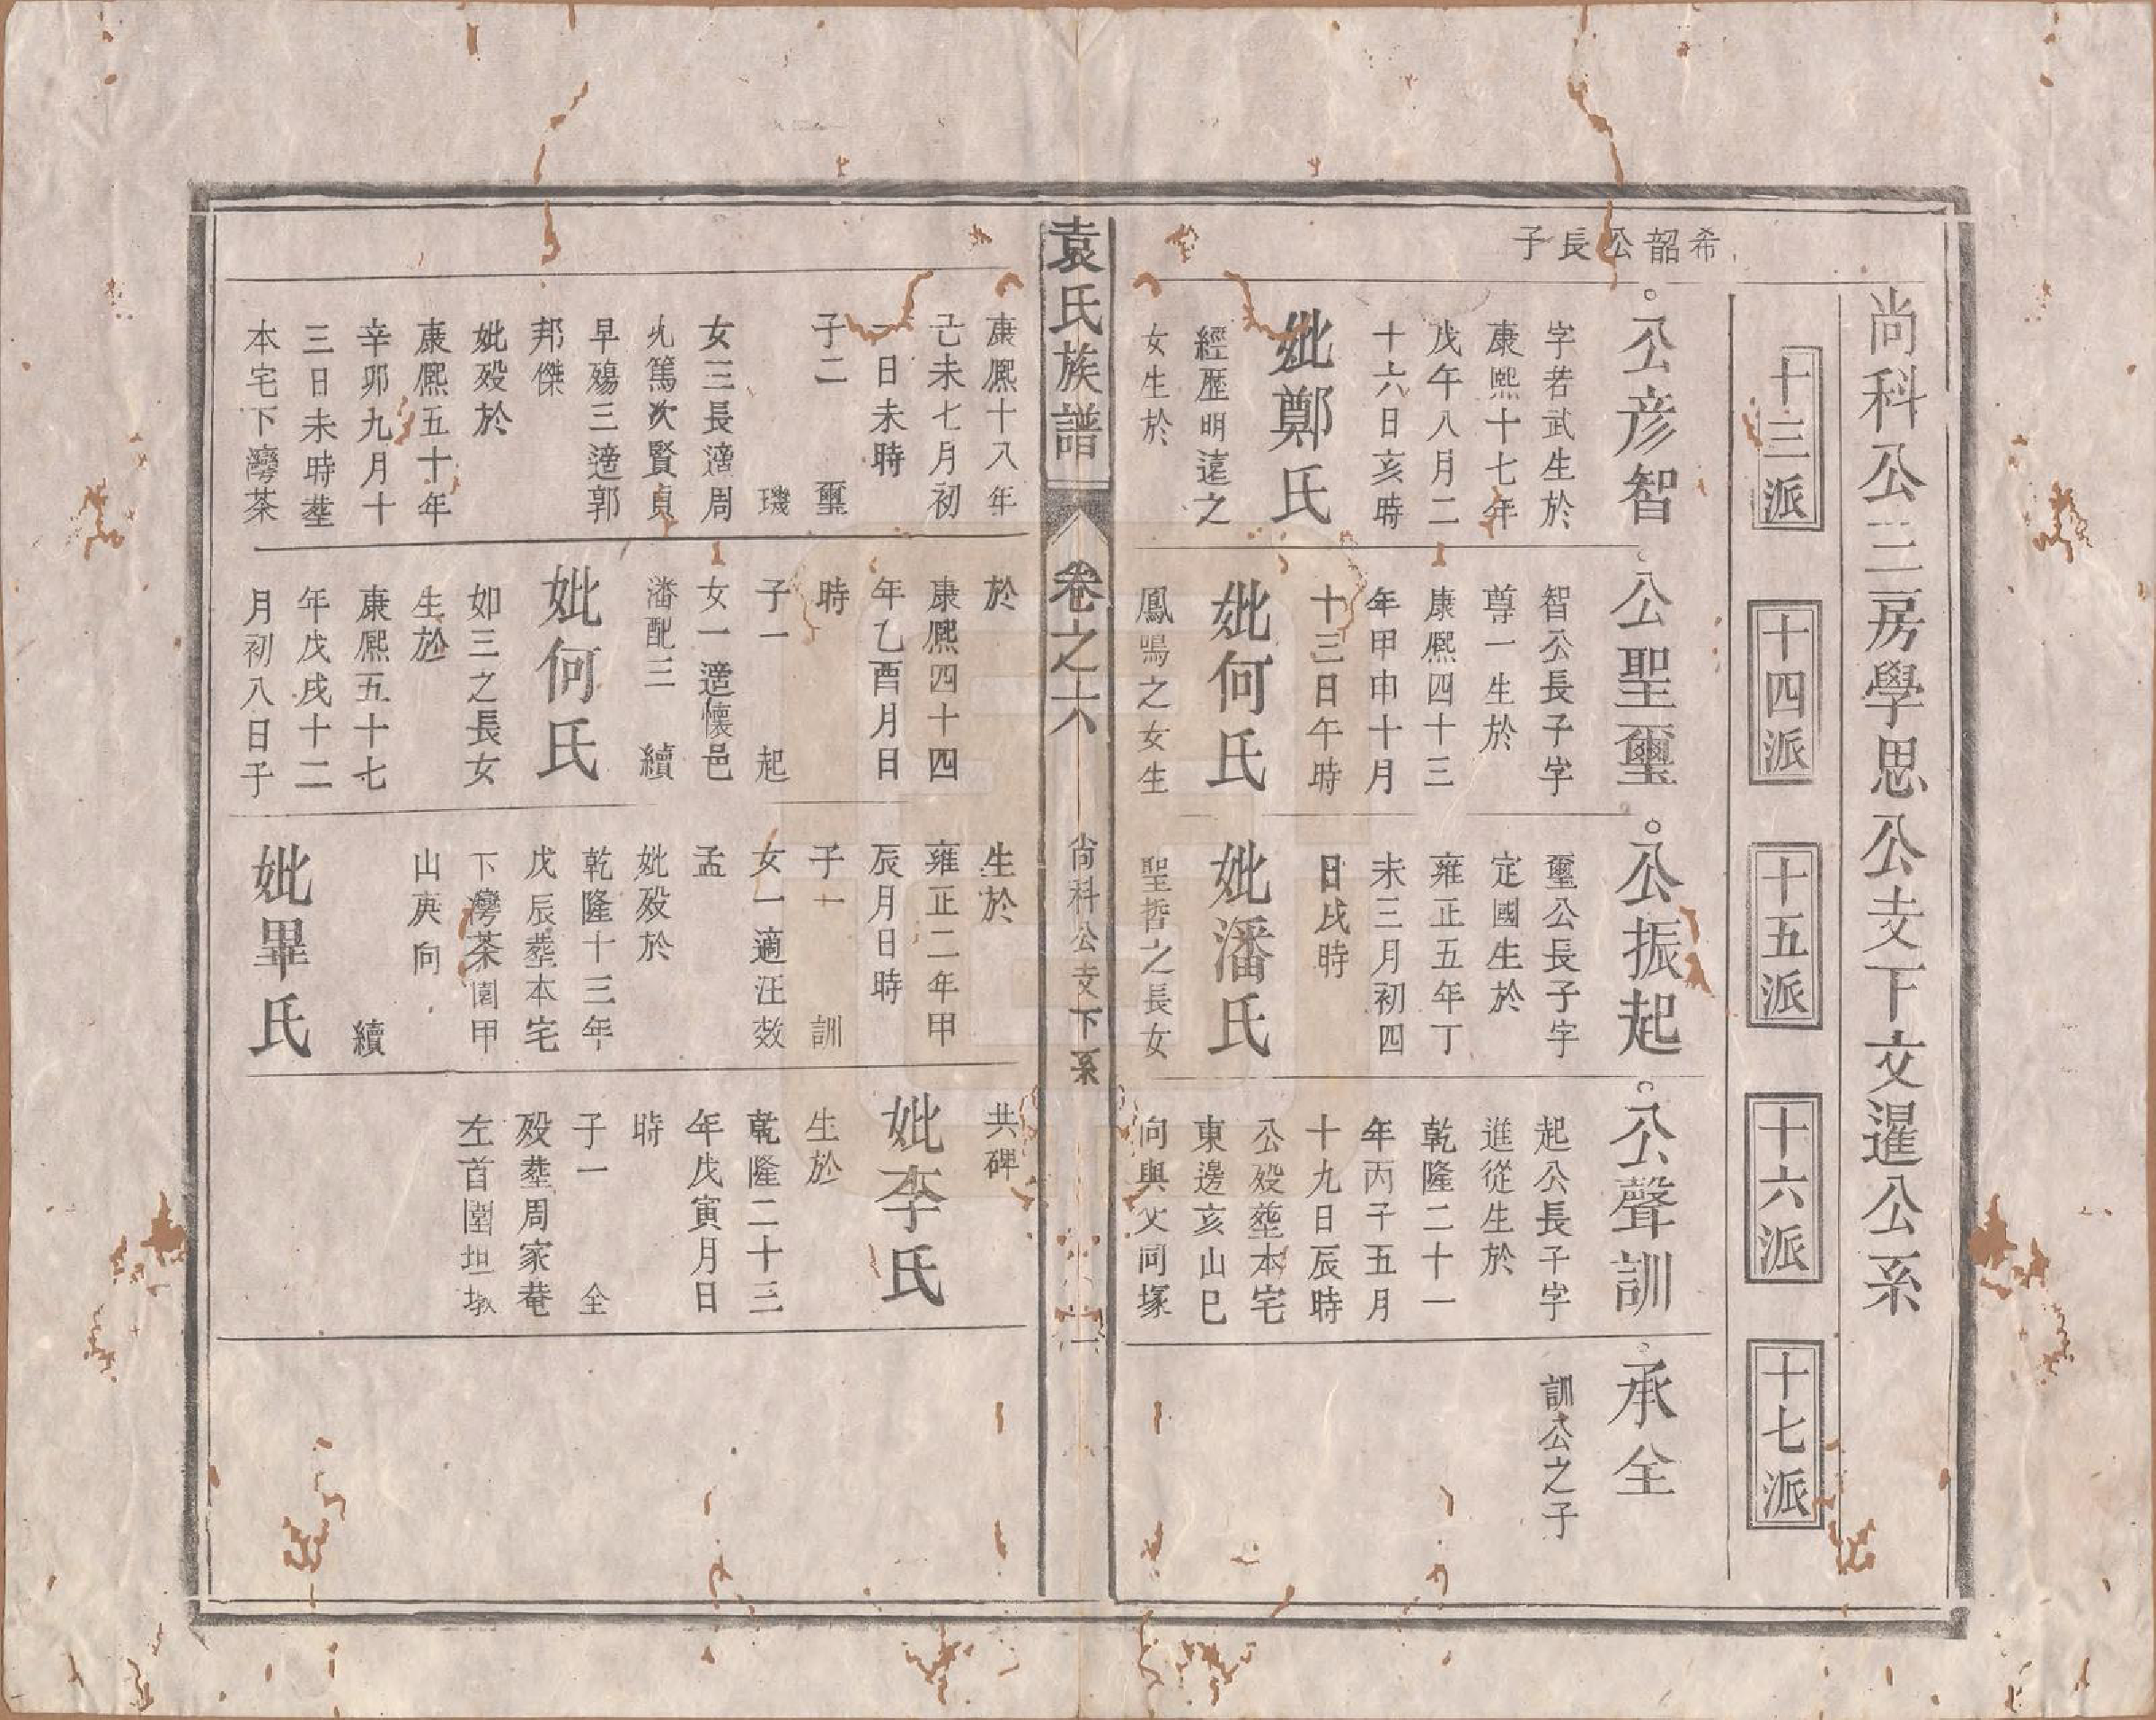 尚科公三房學思公支下文暹公系
十三派
十四派
十五派
十六派
十七派
希韶公長子
公彥智
字若武生於
康熙十七年
戊午八月二
十六日亥時
妣鄭氏
經歷明遠之
女生於
康熙十八年
己未七月初
一日未時
子二　璽
璣
女三長適周
九篤次賢貞
早殤三適郭
邦傑
妣歿於
康熙五十年
辛卯九月十
三日未時塟
本宅下灣茶
公聖璽
智公長子字
尊一生於
康熙四十三
年甲申十月
十三日午時
妣何氏
鳳鳴之女生
於
康熙四十四
年乙酉月日
時
子一　起
女一適懷邑
潘配三　續
妣何氏
如三之長女
生於
康熙五十七
年戊戌十二
月初八日子
公振起
璽公長子字
定國生於
雍正五年丁
未三月初四
日戌時
妣潘氏
聖哲之長女
生於
雍正二年甲
辰月日時
子一　訓
女一適汪效
孟
妣歿於
乾隆十三年
戊辰塟本宅
下灣茶園甲
山庚向
續
妣畢氏
公聲訓
起公長子字
進從生於
乾隆二十一
年丙子五月
十九日辰時
公歿塟本宅
東邊亥山巳
向與父同塚
共碑
妣李氏
生於
乾隆二十三
年戊寅月日
時
子一　全
歿塟周家菴
左首園坦墩
承全
訓公之子
袁氏族譜
卷之六
尚科公支下系
一